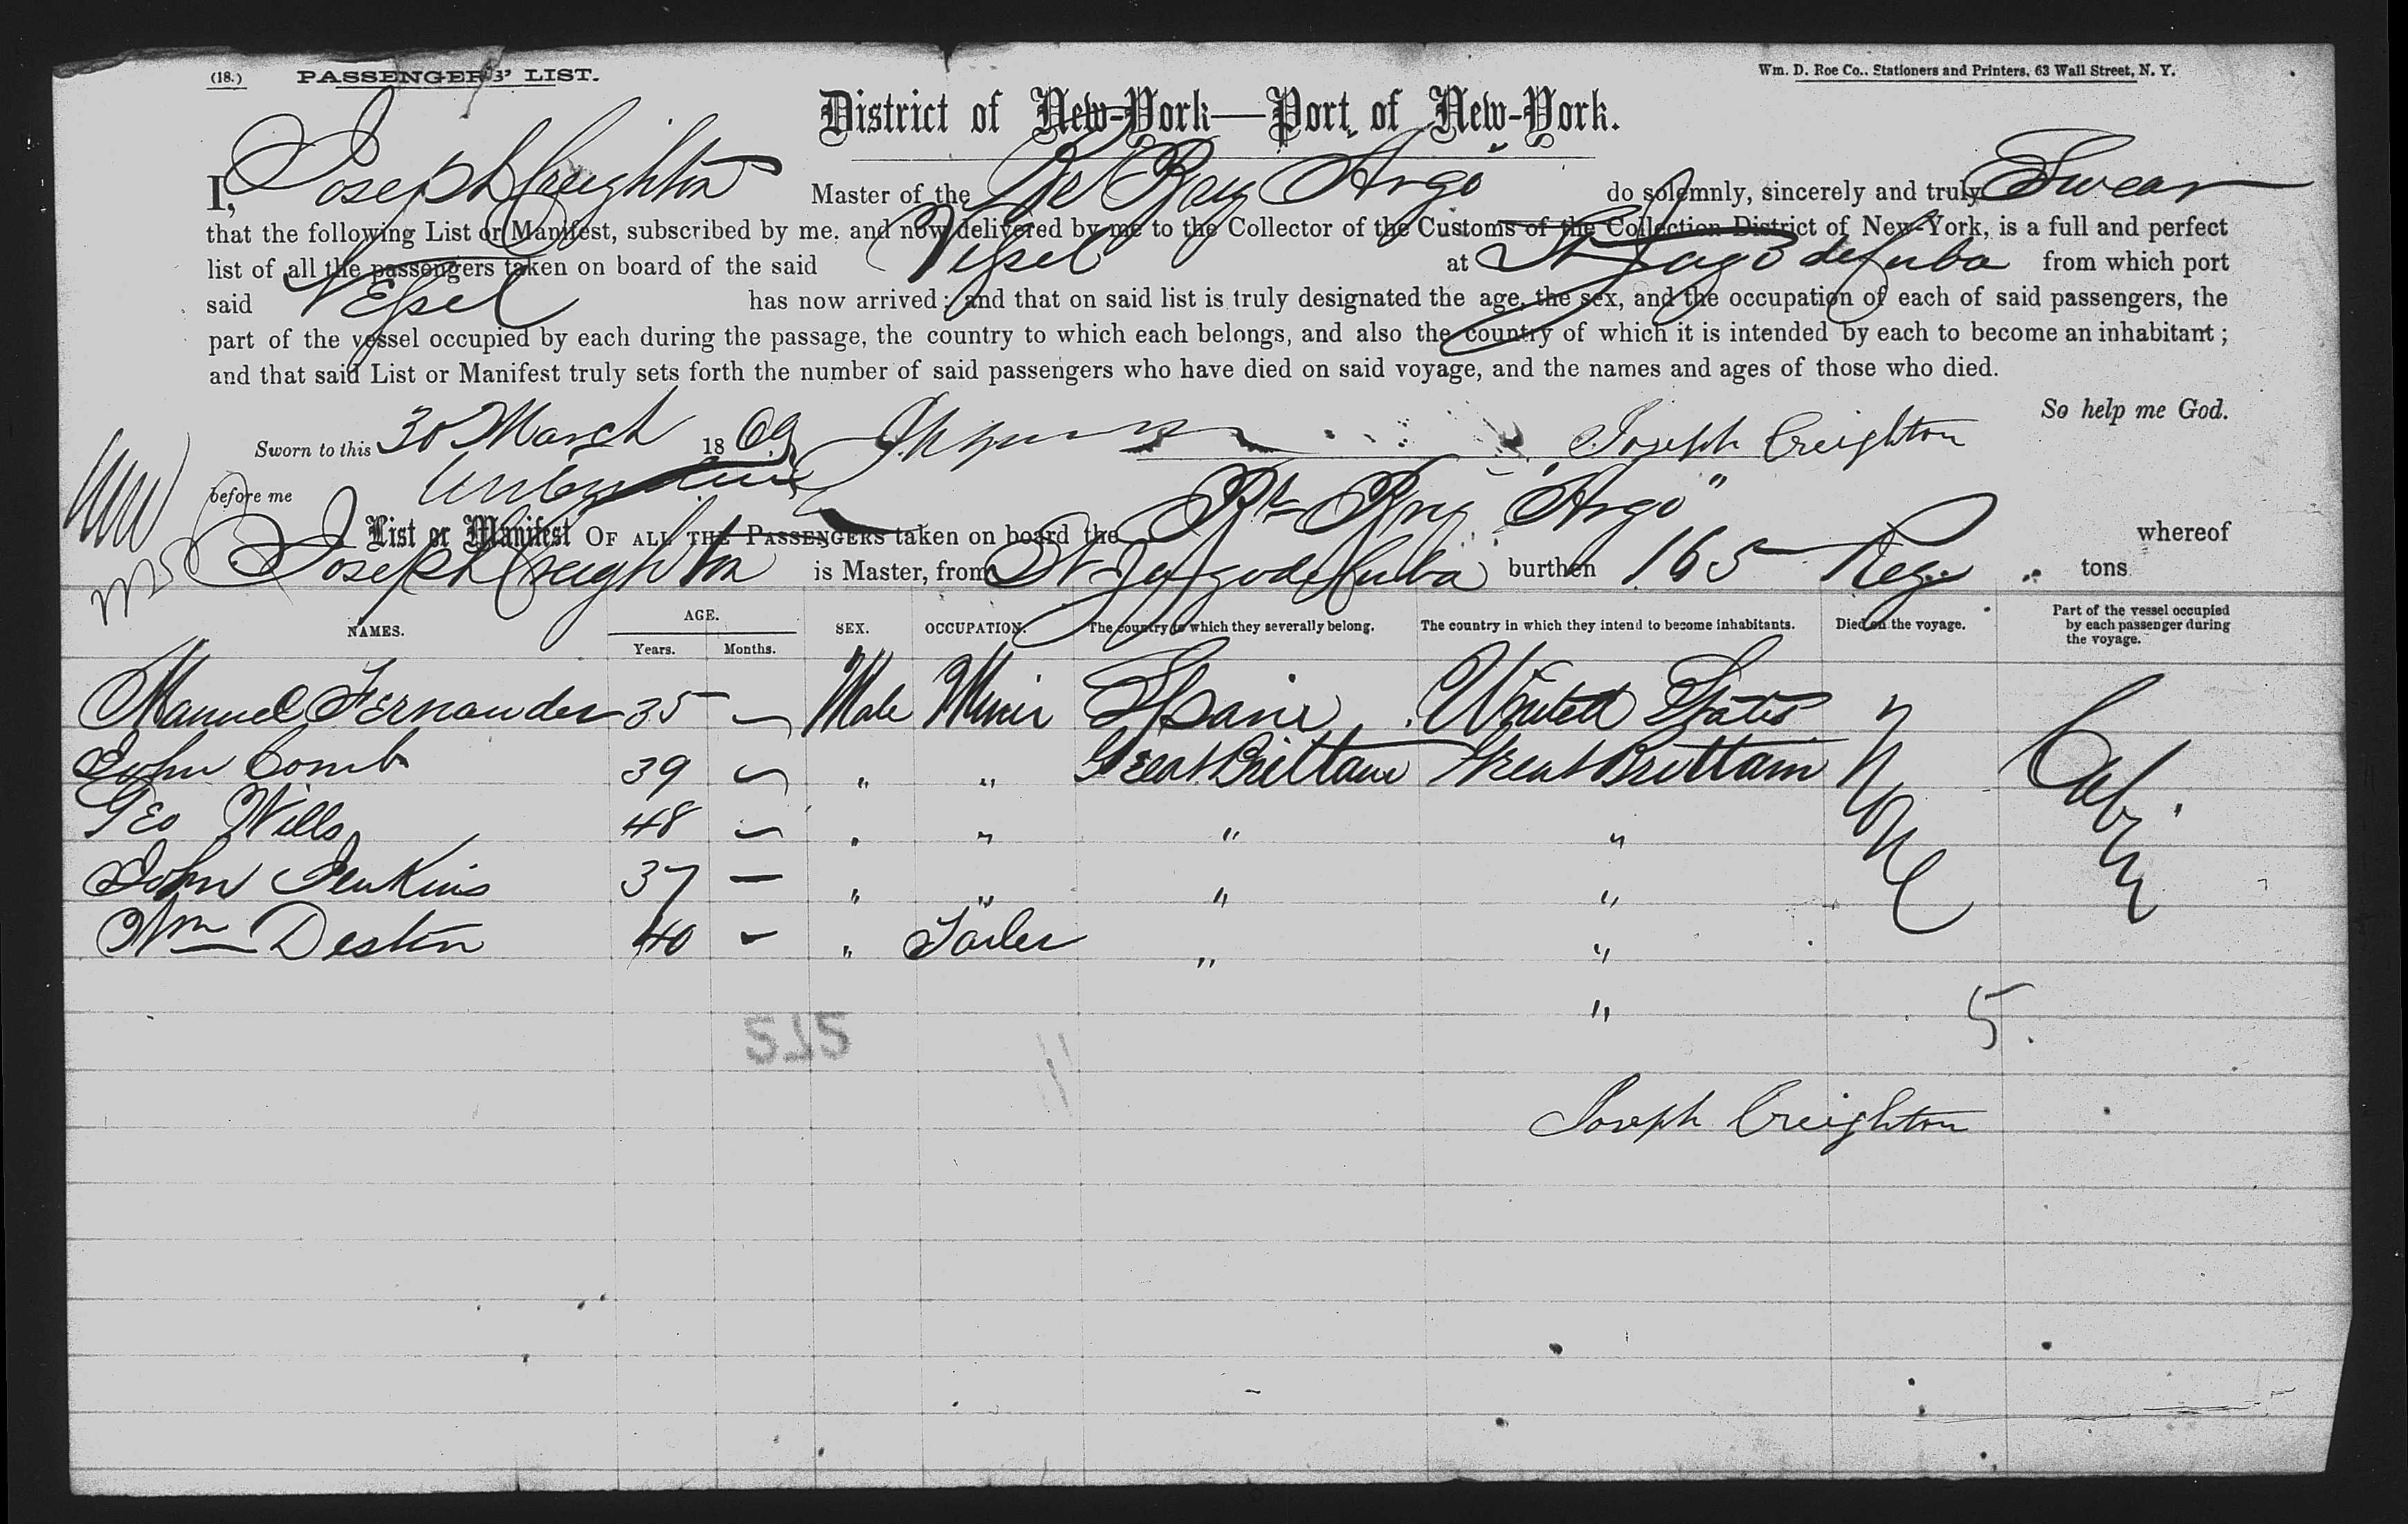 (18.) PASSENGERS' LIST. Wm. D. Roe Co., Stationers and Printers, 63 Wall Street, N. Y.
District of New-York—Port of New-York.
I, Joseph Creighton Master of the Br Brig Argo do solemnly, sincerely and truly Swear
that the following List or Manifest, subscribed by me, and now delivered by me to the Collector of the Customs of the Collection District of New-York, is a full and perfect
list of all the passengers taken on board of the said Vessel at St Jago de Cuba from which port
said Vessel has now arrived; and that on said list is truly designated the age, the sex, and the occupation of each of said passengers, the
part of the vessel occupied by each during the passage, the country to which each belongs, and also the country of which it is intended by each to become an inhabitant;
and that said List or Manifest truly sets forth the number of said passengers who have died on said voyage, and the names and ages of those who died.
So help me God.
Sworn to this 30 March 1869 Joseph Creighton
before me
List or Manifest OF ALL THE PASSENGERS taken on board the Br Brig "Argo" whereof
Joseph Creighton is Master, from St Jago de Cuba burthen 165 Reg. tons
NAMES. AGE. Years. Months. SEX. OCCUPATION. The country to which they severally belong. The country in which they intend to become inhabitants. Died on the voyage. Part of the vessel occupied by each passenger during the voyage.
Manuel Fernander 35 — Male Miner Spain United States
John Comb 39 — " " Great Brittain Great Brittain
Geo Wills 48 — " " " "
John Jenkins 37 — " " " "
Wm Destin 40 — " Sailer " "
"
Cabin
5.
515
Joseph Creighton